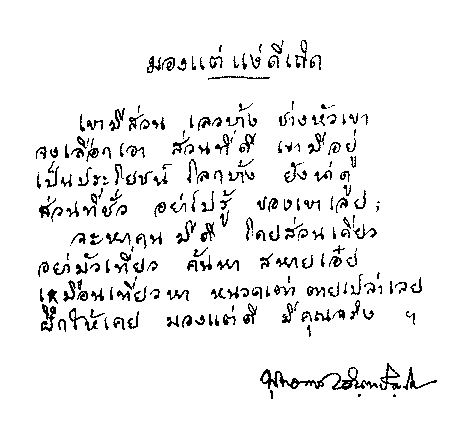 มองแต่แง่ดีเถิด
เขามีส่วน เลวบ้าง ช่างหัวเขา
จงเลือกเอา ส่วนที่ดี เขามีอยู่
เป็นประโยชน์ โลกบ้าง ยังน่าดู
ส่วนที่ชั่ว อย่าไปรู้ ของเขาเลย;
จะหาคน มีดี โดยส่วนเดียว
อย่ามัวเที่ยว ค้นหา สหายเอ๋ย
เหมือนเที่ยวหา หนวดเต่า ตายเปล่าเลย
ฝึกให้เคย มองแต่ดี มีคุณจริง ฯ
พุทธทาส อินทปัญโญ